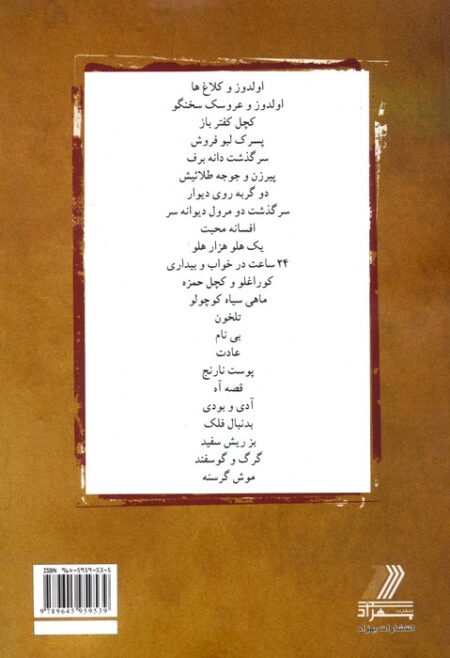 اولدوز و کلاغ ها
اولدوز و عروسک سخنگو
کچل کفتر باز
پسرک لبو فروش
سرگذشت دانه برف
پیرزن و جوجه طلائیش
دو گربه روی دیوار
سرگذشت دو مرول دیوانه سر
افسانه محبت
یک هلو هزار هلو
۲۴ ساعت در خواب و بیداری
کوراغلو و کچل حمزه
ماهی سیاه کوچولو
تلخون
بی نام
عادت
پوست نارنج
قصه آه
آدی و بودی
بدنبال فلک
بز ریش سفید
گرگ و گوسفند
موش گرسنه
ISBN 964-5959-53-5
9 789645 959539
انتشارات بهزاد